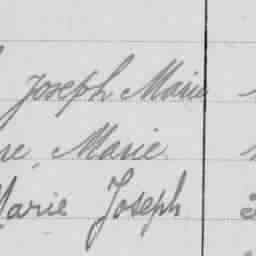 Joseph Marie
Marie
Marie Joseph